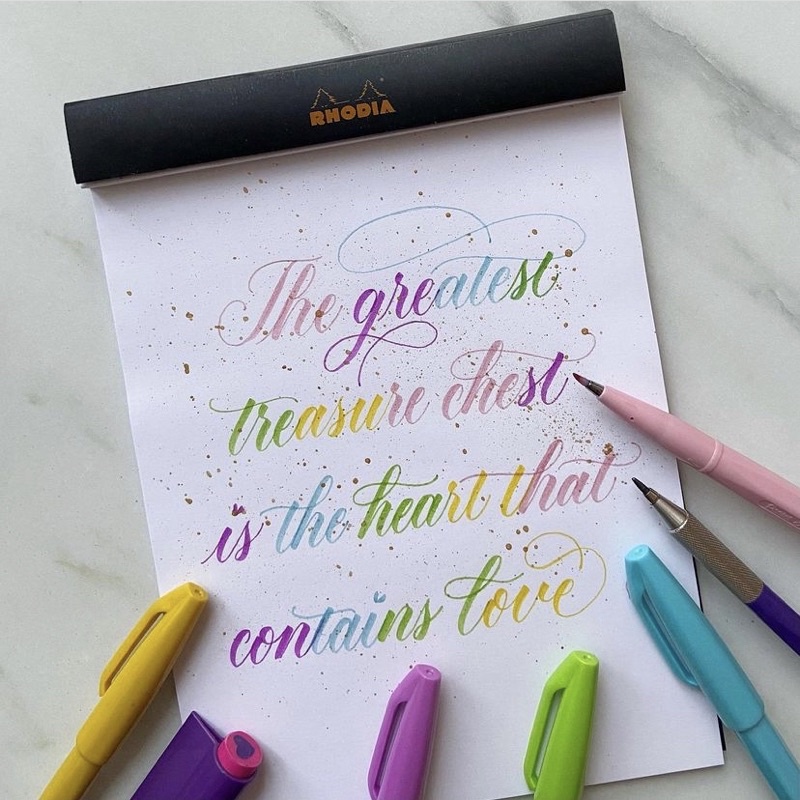 RHODIA
The greatest
treasure chest
is the heart that
contains love